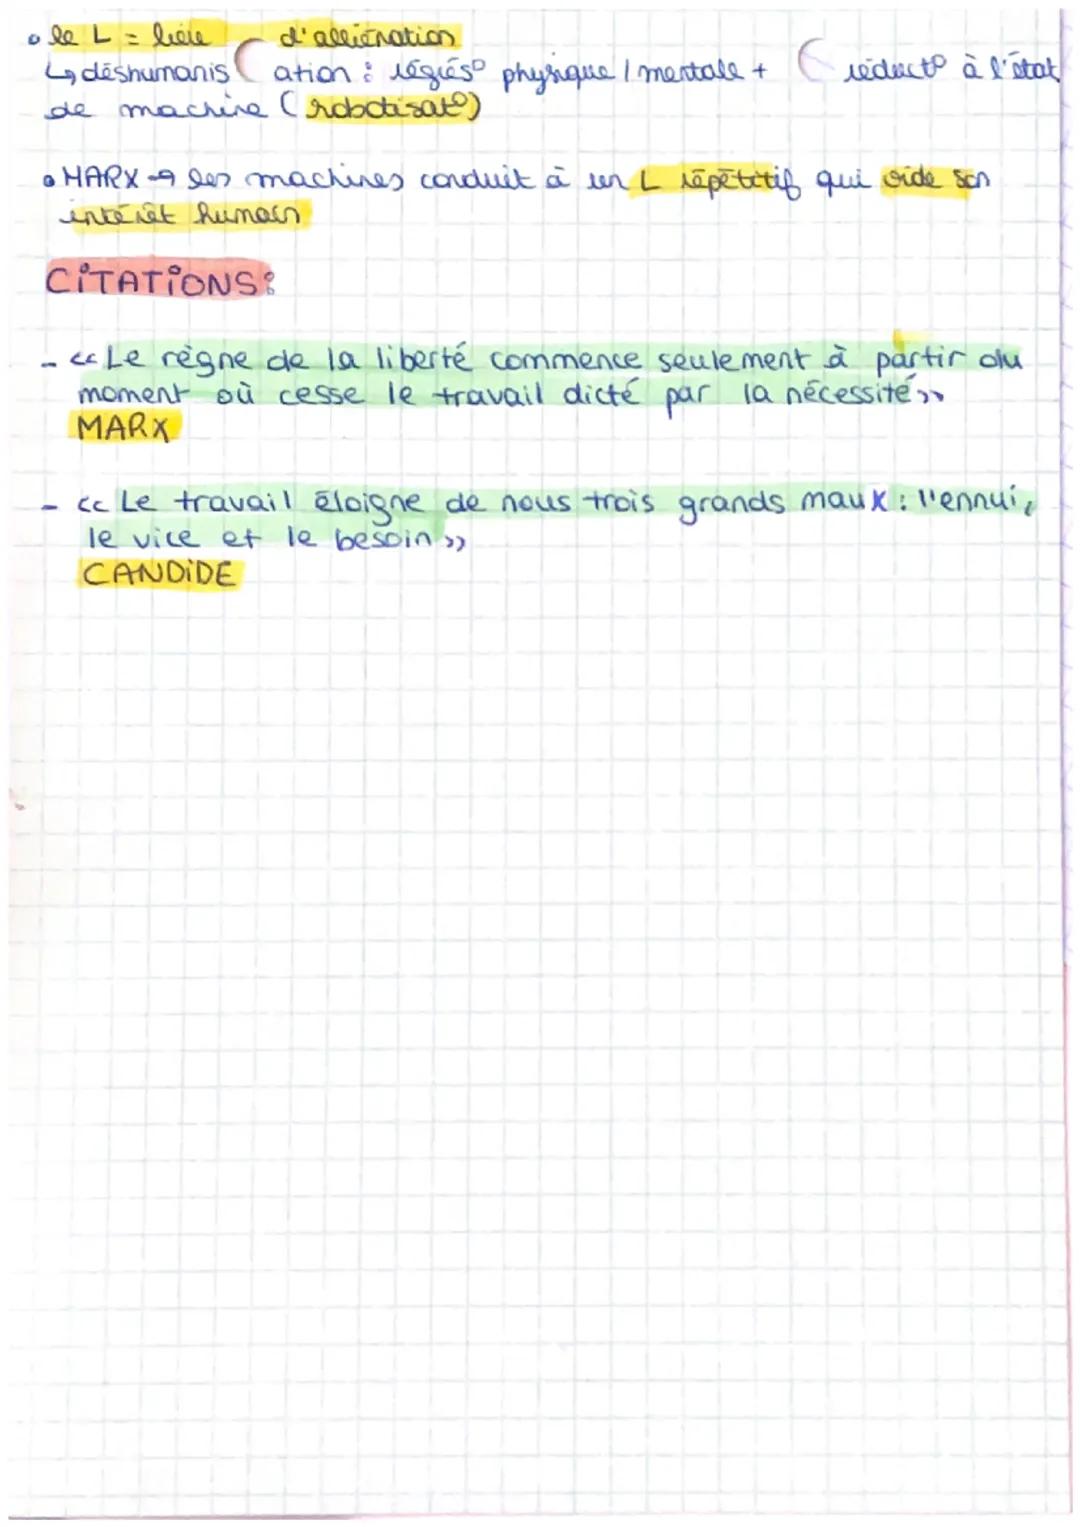 • le L = lieu d'alliénation
↳ déshumanis ation : régres° physique / mentale + réduct° à l'état
de machine (robotisat°)
• MARX → les machines conduit à un L répétitif qui vide son
intérêt humain
CITATIONS :
- << Le règne de la liberté commence seulement à partir du
moment où cesse le travail dicté par la nécessité >>
MARX
- << Le travail éloigne de nous trois grands maux : l'ennui,
le vice et le besoin >>
CANDIDE